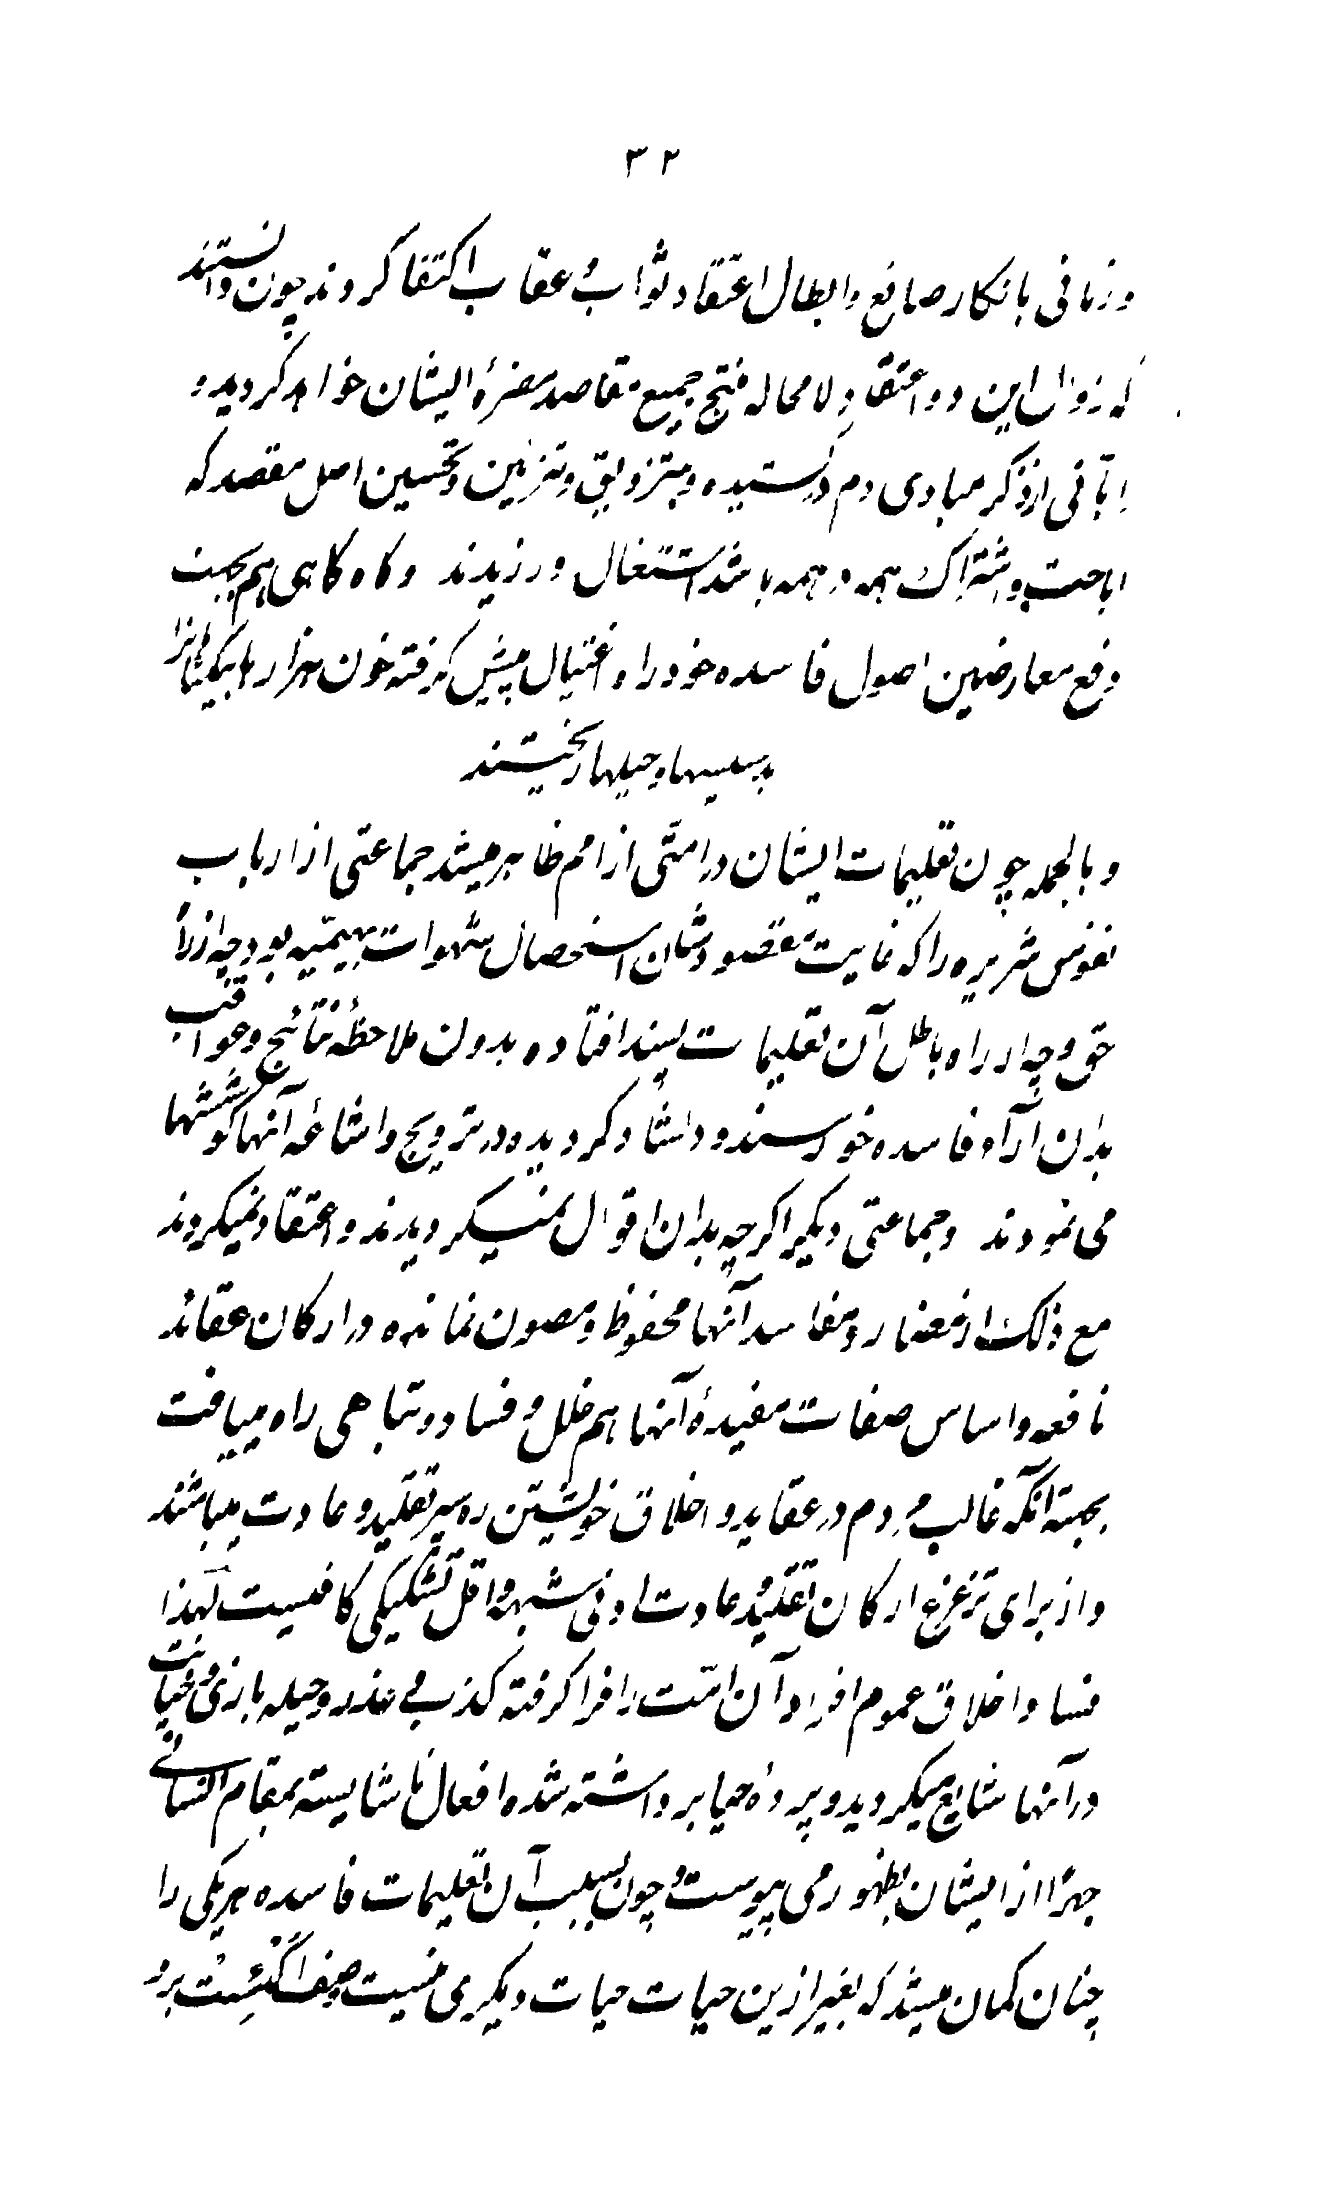 ۳۲
و زمانی بانکار صانع و ابطال اعتقاد ثواب و عقاب اکتفا کردند چون دانستند
که زوال این دو اعتقاد لا محاله منتج جمیع مقاصد مضرهٔ ایشان خواهد گردید و
زمانی از ذکر مبادی دم درکشیده و بتزویق و تزیین و تحسین اصل مقصد که
اباحت و اشتراک همه در همه باشد اشتغال ورزیدند و کاه کاهی هم بجهت
دفع معارضین اصول فاسده خود راه اغتیال پیش گرفته خون هزارها بیگناهانرا
بدسیسها و حیلها ریختند
و بالجمله چون تعلیمات ایشان در امتی از امم ظاهر میشد جماعتی از ارباب
نفوس شریره را که غایت مقصودشان استحصال شهوات بهیمیه بود چه از راه
حق و چه از راه باطل آن تعلیمات پسند افتاده بدون ملاحظهٔ نتائج و عواقب
بدان آراء فاسده خورسند و دلشاد گردیده در ترویج و اشاعهٔ آنها کوششها
می نمودند و جماعتی دیگر اگرچه بدان اقوال نمیگرویدند و اعتقاد نمیکردند
مع ذلک از مضار و مفاسد آنها محفوظ و مصون نمانده در ارکان عقائد
نافعه و اساس صفات مفیدهٔ آنها هم خلل و فساد و تباهی راه مییافت
بجهته آنکه غالب مردم در عقاید و اخلاق خویشتن ره سپر تقلید و عادت میباشند
و از برای تزعزع ارکان تقلید و عادت ادنی شبهه و اقل تشکیکی کافیست لهذا
فساد اخلاق عموم افراد آن امّت را فرا گرفته کذب و غدر و حیله بازی و خیانت
در آنها شایع میگردید و پردهٔ حیا برداشته شده افعال نا شایسته بمقام انسانی
جهرًا از ایشان بظهور می پیوست و چون بسبب آن تعلیمات فاسده هر یکی را
چنان گمان میشد که بغیر ازین حیات حیات دیگری نیست صفت اگئیست برو